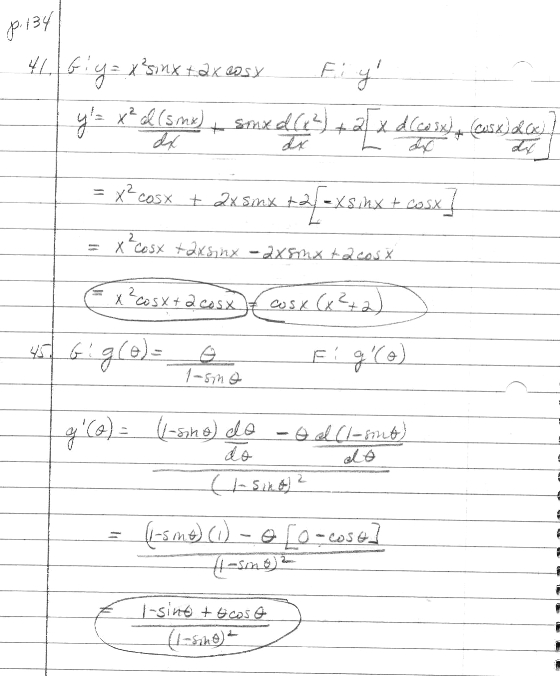 p.134
41. G: y = x²sinx + 2x cosx F: y'
y' = x² d(sinx)/dx + sinx d(x²)/dx + 2[x d(cosx)/dx + (cosx) d(x)/dx]
= x²cosx + 2x sinx + 2[-x sinx + cosx]
= x²cosx + 2x sinx - 2x sinx + 2cosx
= x²cosx + 2cosx = cosx (x²+2)
45. G: g(θ) = θ/(1-sinθ) F: g'(θ)
g'(θ) = ((1-sinθ) dθ/dθ - θ d(1-sinθ)/dθ)/(1-sinθ)²
= ((1-sinθ)(1) - θ[0-cosθ])/(1-sinθ)²
= (1-sinθ + θcosθ)/(1-sinθ)²